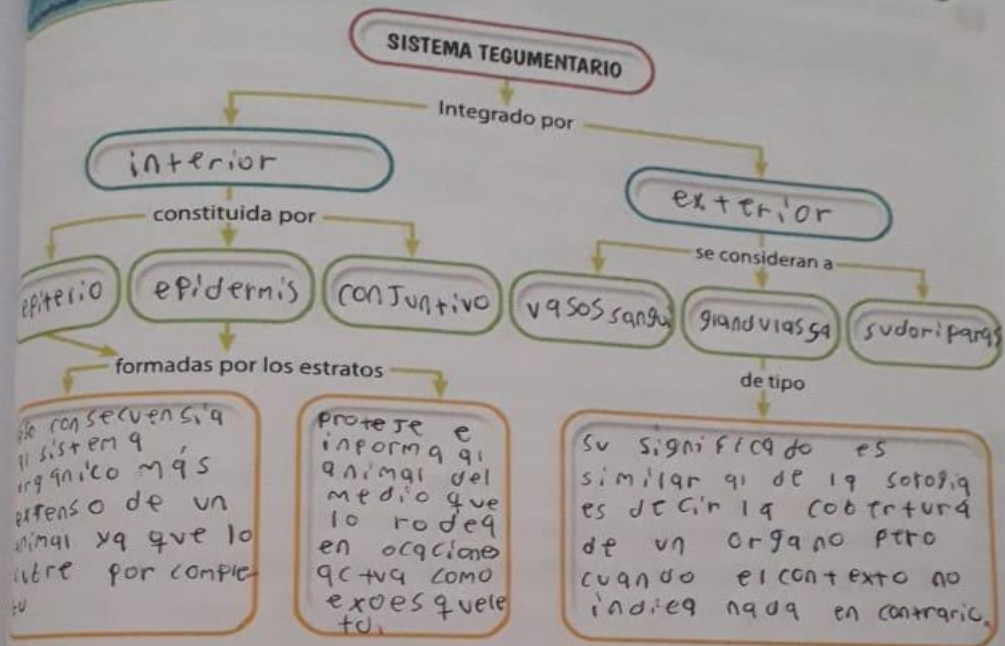 SISTEMA TEGUMENTARIO
Integrado por
interior
exterior
constituida por
se consideran a
epiterio
epidermis
conJuntivo
vasos sangu
glandulas sa
sudoriparas
formadas por los estratos
de tipo
consecuensia
sistema
organico más
extenso de un
animal ya que lo
por comple
proteJe e
informa al
animal del
medio que
lo rodea
en ocacione
actua como
exoesquele
to.
su significado es
similar al de la
es decir la cobertura
de un organo pero
cuando el contexto no
indica nada en contrario.